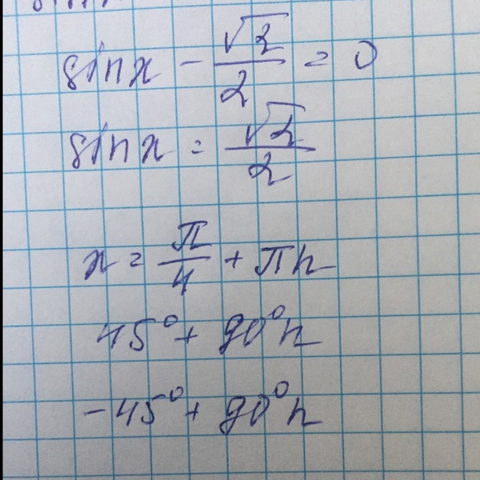 sinx - √2/2 = 0
sinx = √2/2
x = π/4 + πn
45° + 90°n
-45° + 90°n